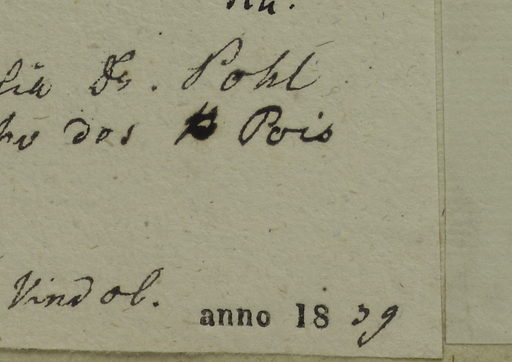 Dr. Pohl
dos Pois
Vindob.
anno 1839